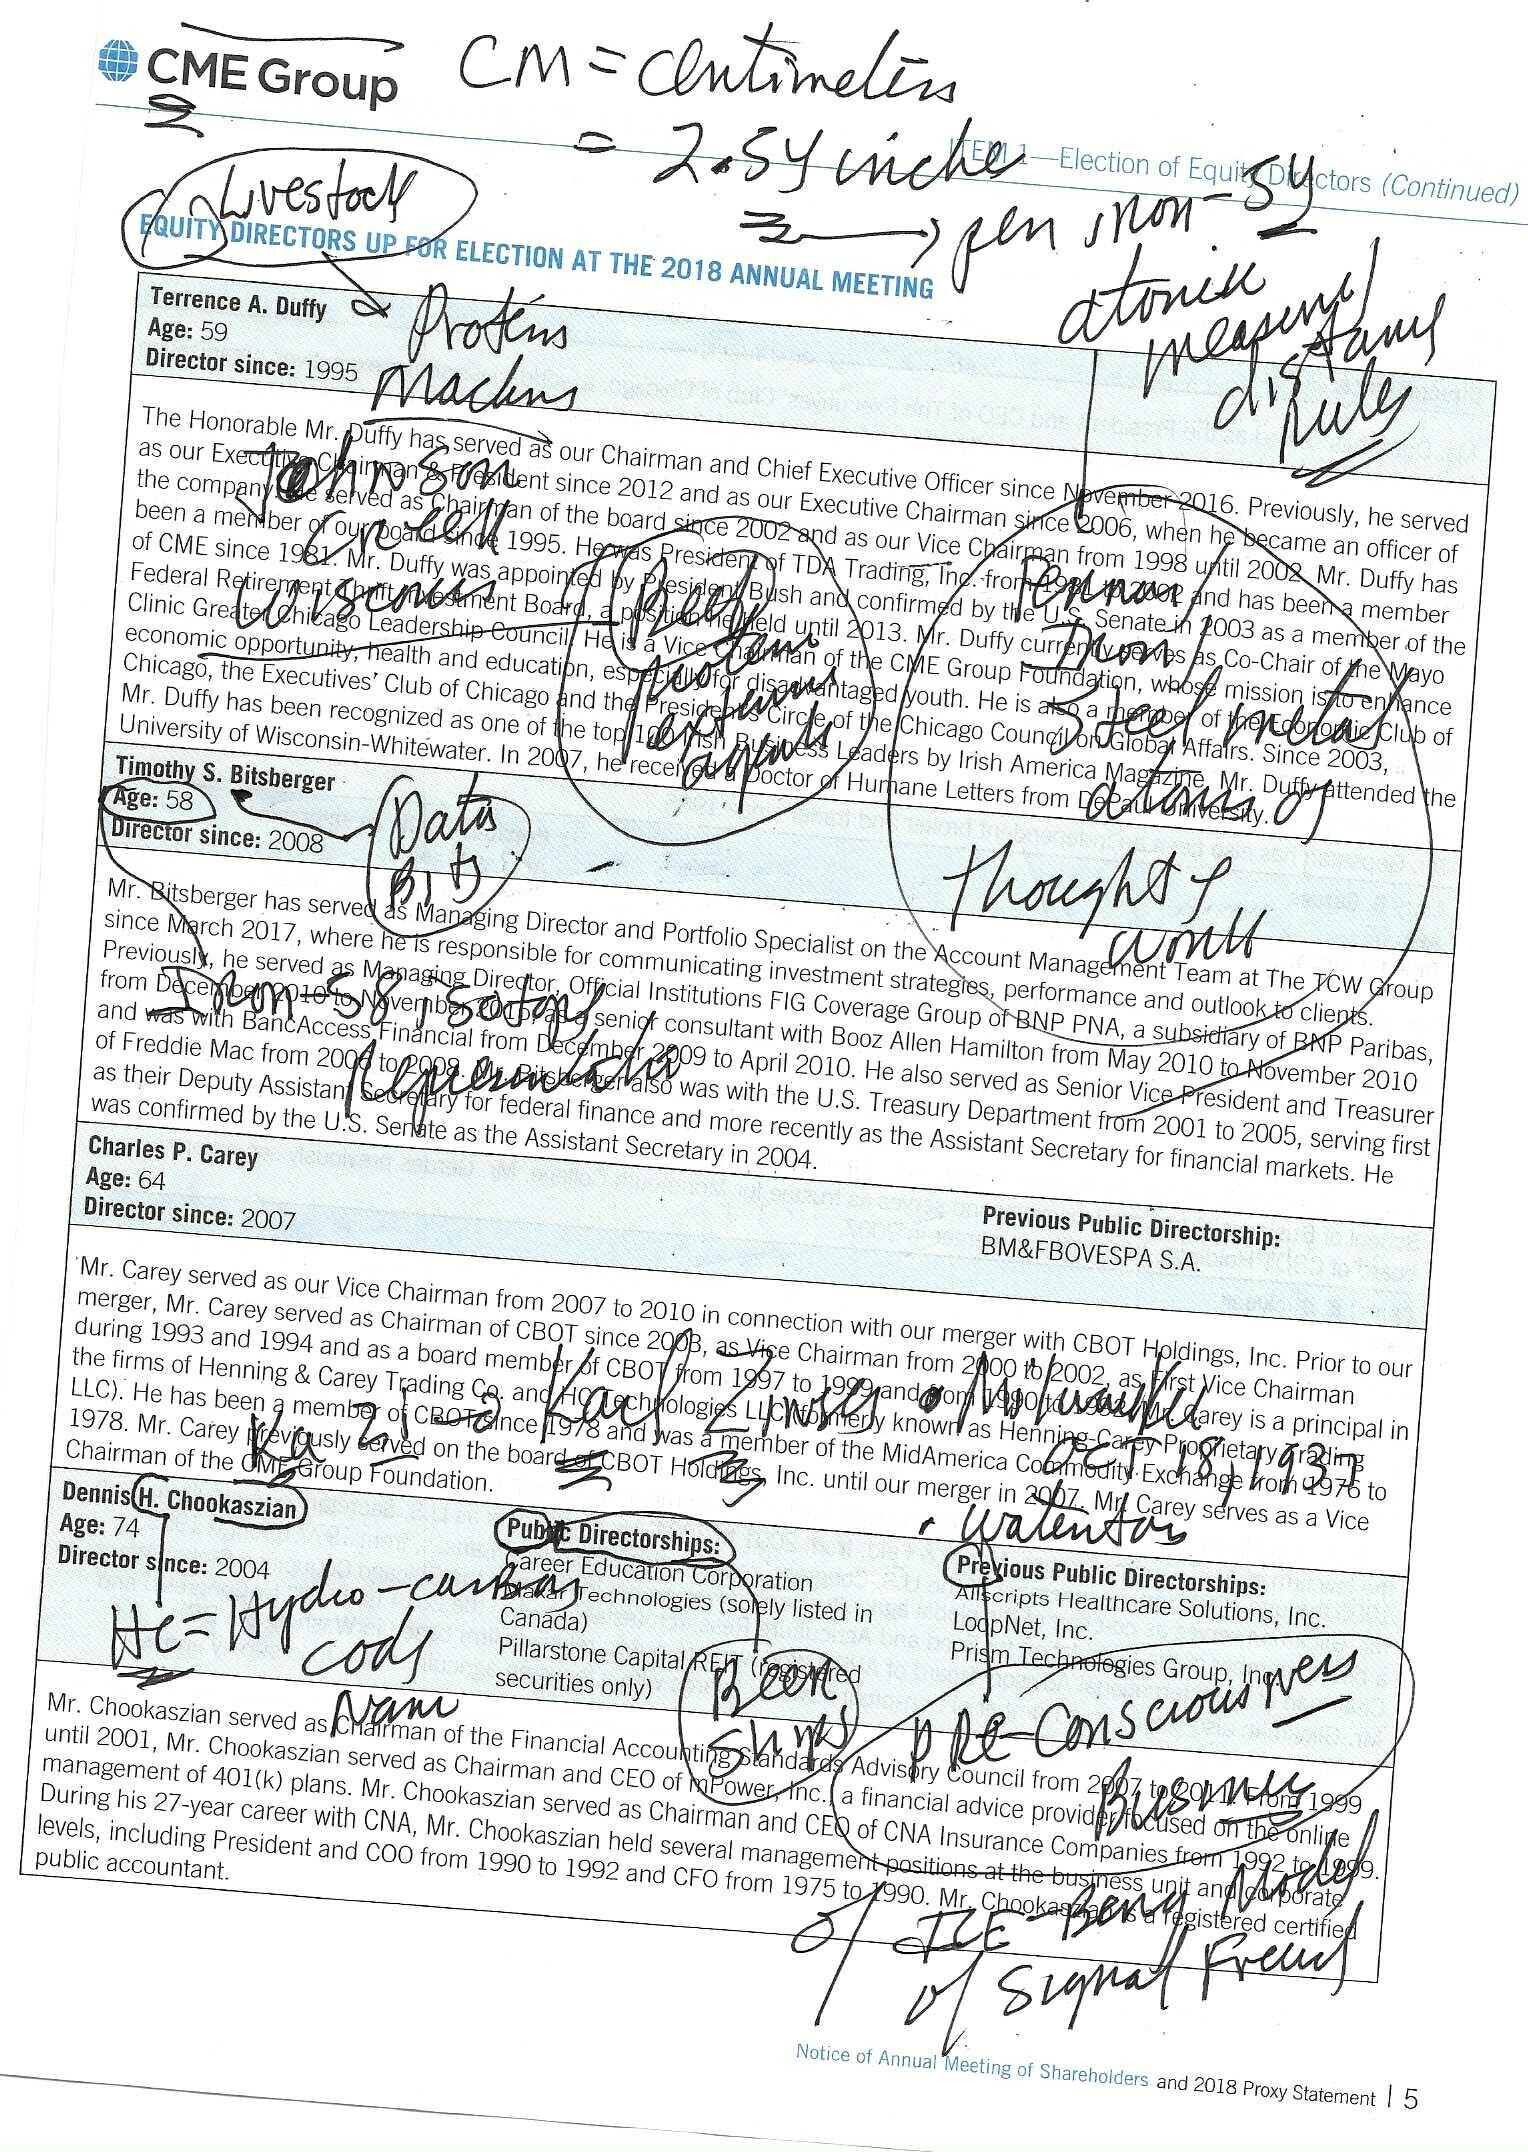 CME Group
CM = Centimeters
= 2.54 inche
ITEM 1—Election of Equity Directors (Continued)
Livestock
54
EQUITY DIRECTORS UP FOR ELECTION AT THE 2018 ANNUAL MEETING
Terrence A. Duffy
Age: 59
Director since: 1995
Proteins
distance
Rules
The Honorable Mr. Duffy has served as our Chairman and Chief Executive Officer since November 2016. Previously, he served
as our Executive Chairman & President since 2012 and as our Executive Chairman since 2006, when he became an officer of
the company. He served as Chairman of the board since 2002 and as our Vice Chairman from 1998 until 2002. Mr. Duffy has
been a member of our board since 1995. He was President of TDA Trading, Inc. from 1981 to 2002 and has been a member
of CME since 1981. Mr. Duffy was appointed by President Bush and confirmed by the U.S. Senate in 2003 as a member of the
Federal Retirement Thrift Investment Board, a position he held until 2013. Mr. Duffy currently serves as Co-Chair of the Mayo
Clinic Greater Chicago Leadership Council. He is a Vice Chairman of the CME Group Foundation, whose mission is to enhance
economic opportunity, health and education, especially for disadvantaged youth. He is also a member of the Economic Club of
Chicago, the Executives' Club of Chicago and the President's Circle of the Chicago Council on Global Affairs. Since 2003,
Mr. Duffy has been recognized as one of the top 100 Irish Business Leaders by Irish America Magazine. Mr. Duffy attended the
University of Wisconsin-Whitewater. In 2007, he received a Doctor of Humane Letters from DePaul University.
Johnson
Creek
Beef
protein
Iron
Steel metal
atoms of
Thought
world
Timothy S. Bitsberger
Age: 58
Director since: 2008
Data
Bits
Mr. Bitsberger has served as Managing Director and Portfolio Specialist on the Account Management Team at The TCW Group
since March 2017, where he is responsible for communicating investment strategies, performance and outlook to clients.
Previously, he served as Managing Director, Official Institutions FIG Coverage Group of BNP PNA, a subsidiary of BNP Paribas,
from December 2010 to November 2015, as a senior consultant with Booz Allen Hamilton from May 2010 to November 2010
and was with BancAccess Financial from December 2009 to April 2010. He also served as Senior Vice President and Treasurer
of Freddie Mac from 2006 to 2008. Mr. Bitsberger also was with the U.S. Treasury Department from 2001 to 2005, serving first
as their Deputy Assistant Secretary for federal finance and more recently as the Assistant Secretary for financial markets. He
was confirmed by the U.S. Senate as the Assistant Secretary in 2004.
Iron-58 isotope
Charles P. Carey
Age: 64
Director since: 2007
Previous Public Directorship:
BM&FBOVESPA S.A.
Mr. Carey served as our Vice Chairman from 2007 to 2010 in connection with our merger with CBOT Holdings, Inc. Prior to our
merger, Mr. Carey served as Chairman of CBOT since 2003, as Vice Chairman from 2000 to 2002, as First Vice Chairman
during 1993 and 1994 and as a board member of CBOT from 1997 to 1999 and from 1990 to 1992. Mr. Carey is a principal in
the firms of Henning & Carey Trading Co. and HC Technologies LLC (formerly known as Henning-Carey Proprietary Trading
LLC). He has been a member of CBOT since 1978 and was a member of the MidAmerica Commodity Exchange from 1976 to
1978. Mr. Carey previously served on the board of CBOT Holdings, Inc. until our merger in 2007. Mr. Carey serves as a Vice
Chairman of the CME Group Foundation.
Ka Zi → Kay Zimes • Milwaukee
OCT 18, 1937
Dennis H. Chookaszian
Age: 74
Director since: 2004
Public Directorships:
Career Education Corporation
Makar Technologies (solely listed in
Canada)
Pillarstone Capital REIT (registered
securities only)
Previous Public Directorships:
Allscripts Healthcare Solutions, Inc.
LoopNet, Inc.
Prism Technologies Group, Inc.
HC = Hydro-carbon
Beer
PRE-Consciousness
Mr. Chookaszian served as Chairman of the Financial Accounting Standards Advisory Council from 2007 to 2011. From 1999
until 2001, Mr. Chookaszian served as Chairman and CEO of mPower, Inc., a financial advice provider focused on the online
management of 401(k) plans. Mr. Chookaszian served as Chairman and CEO of CNA Insurance Companies from 1992 to 1999.
During his 27-year career with CNA, Mr. Chookaszian held several management positions at the business unit and corporate
levels, including President and COO from 1990 to 1992 and CFO from 1975 to 1990. Mr. Chookaszian is a registered certified
public accountant.
Model
of
of Sigmal Freud
Notice of Annual Meeting of Shareholders and 2018 Proxy Statement | 5